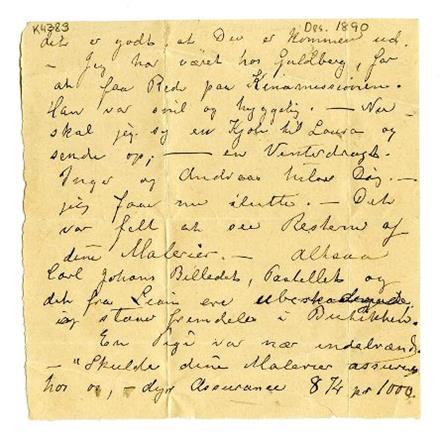 K4383
Des. 1890
det er godt at Du er kommen ud.
– Jeg har været hos Guldberg, for
at faa Rede paa Kinamissionen.
Han var snil og hyggelig. – Nu
skal jeg sy en Kjole til Laura og
sende op; – en Vinterdragt.
Inger og Andreas hilser Dig. –
jeg faar nu slutte. – Det
var fælt at see Resterne af
dine Malerier. – altsaa
Carl Johans Billedet, Pastellet og
det fra Leian ere ubeskadigede,
og staar fremdeles i Butikken.
En Pige var nær indebrændt.
– "Skulde dine Malerier assureres
hos os, – dyr Assurance 8 74 pr 1000.